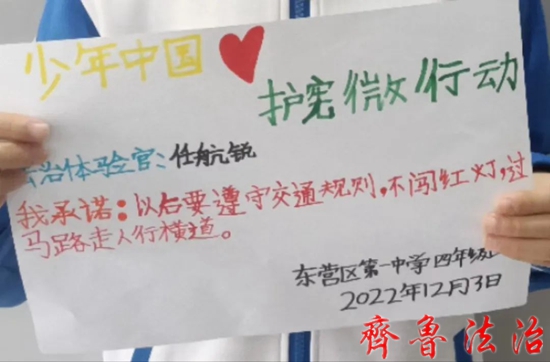 少年中国
护宪微行动
法治体验官：任航锐
我承诺：以后要遵守交通规则，不闯红灯，过
马路走人行横道。
东营区第一中学四年级
2022年12月3日
齐鲁法治